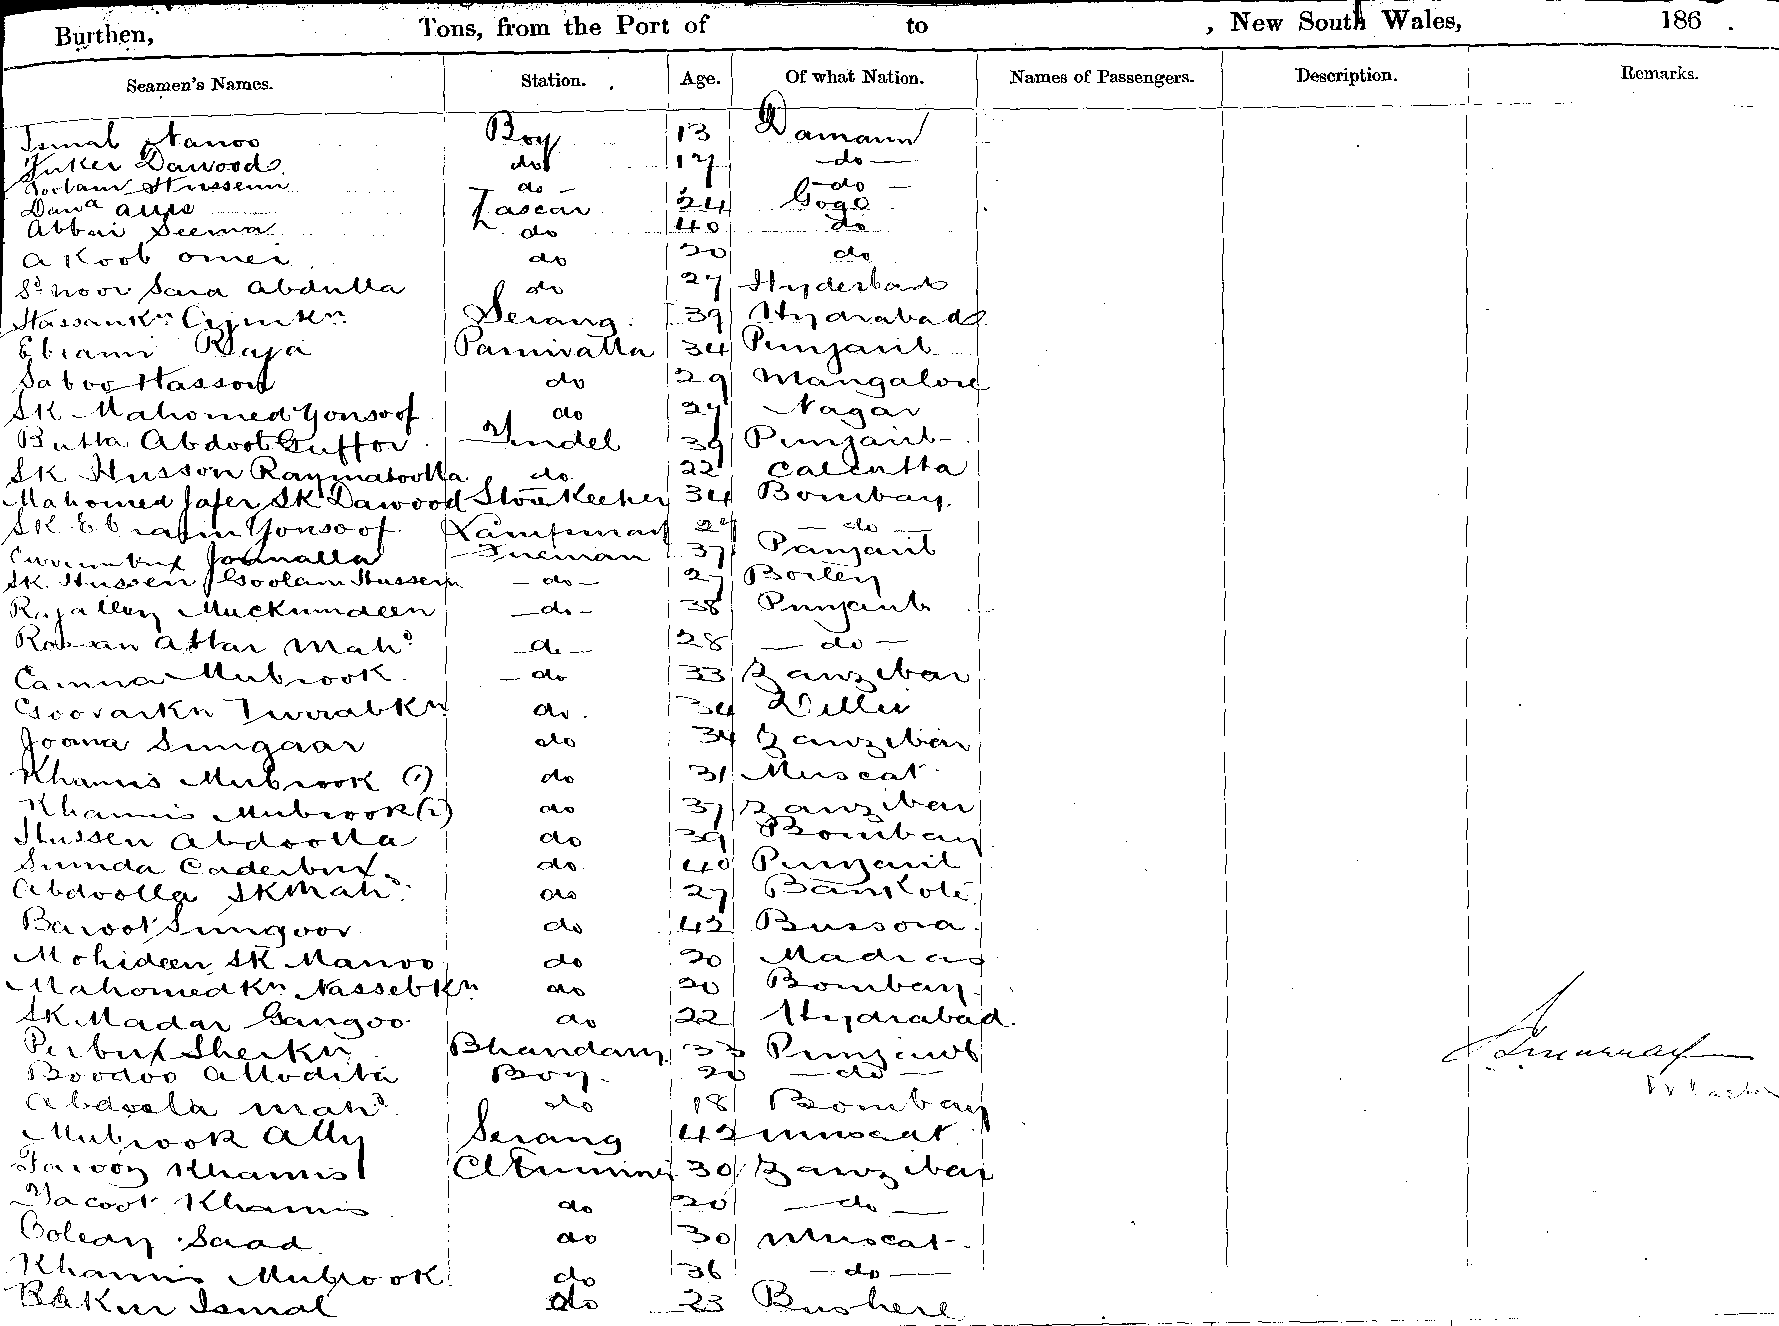 Burthen, Tons, from the Port of to , New South Wales, 186 .
Seamen's Names. Station. Age. Of what Nation. Names of Passengers. Description. Remarks.
Ismal Nanoo Boy 13 Damaun
Juker Dawood do 17 do
Goolam Hussein do do
Dawa Lascar 24 Gogo
Abbai Seema do 40 do
Akoob Omer do 20 do
Sd Noor Sara Abdulla do 27 Hyderbad
Hassankn Serang 39 Hydrabad
Ebrami Raja Paniwalla 34 Punjaub
Saboo Hasson do 29 Mangalore
SK Mahomed Yonsoof do 27 Nagar
Butta Abdool Guffor Tindel 39 Punjaub
SK Husson Raymatoolla do 22 Calcutta
Mahomed Jafer SK Dawood Storekeeper 34 Bombay
SK Ebrahim Yonsoof Lampman 27 do
Jonnalla Fireman 37 Panjaub
SK Hussen Goolam Hussein do 27
Rajalley Muckumdeen do 38 Punjaub
Attar Mahd do 28 do
Camna Mubrook do 33 Zanzibar
Goovarkn Turrabkn do 34 Dellie
Joana Sungaar do 34 Zanzibar
Khamis Mubrook (1) do 31 Muscat
Khamis Mubrook (2) do 37 Zanzibar
Hussen Abdoolla do 39 Bombay
Sunda Caderbux do 40 Punjaub
Abdoolla SK Mahd do 27 Bankote
Baroot Sungoor do 42 Bussora
Mohideen SK Manoo do 20 Madras
Mahomedkn Nassebkn do 20 Bombay
SK Madar Gangoo do 22 Hydrabad
Perbux Sheikh Bhandary 33 Punjaub
Boodoo Allodita Boy 20 do
Abdoola Mahd do 18 Bombay
Mubrook Ally Serang 42 Muscat
Khamis 30 Zanzibar
Yacoot Khamis do 20 do
Saad do 30 Muscat
Khamis Mubrook do 36 do
Ismal do 23 Bushere